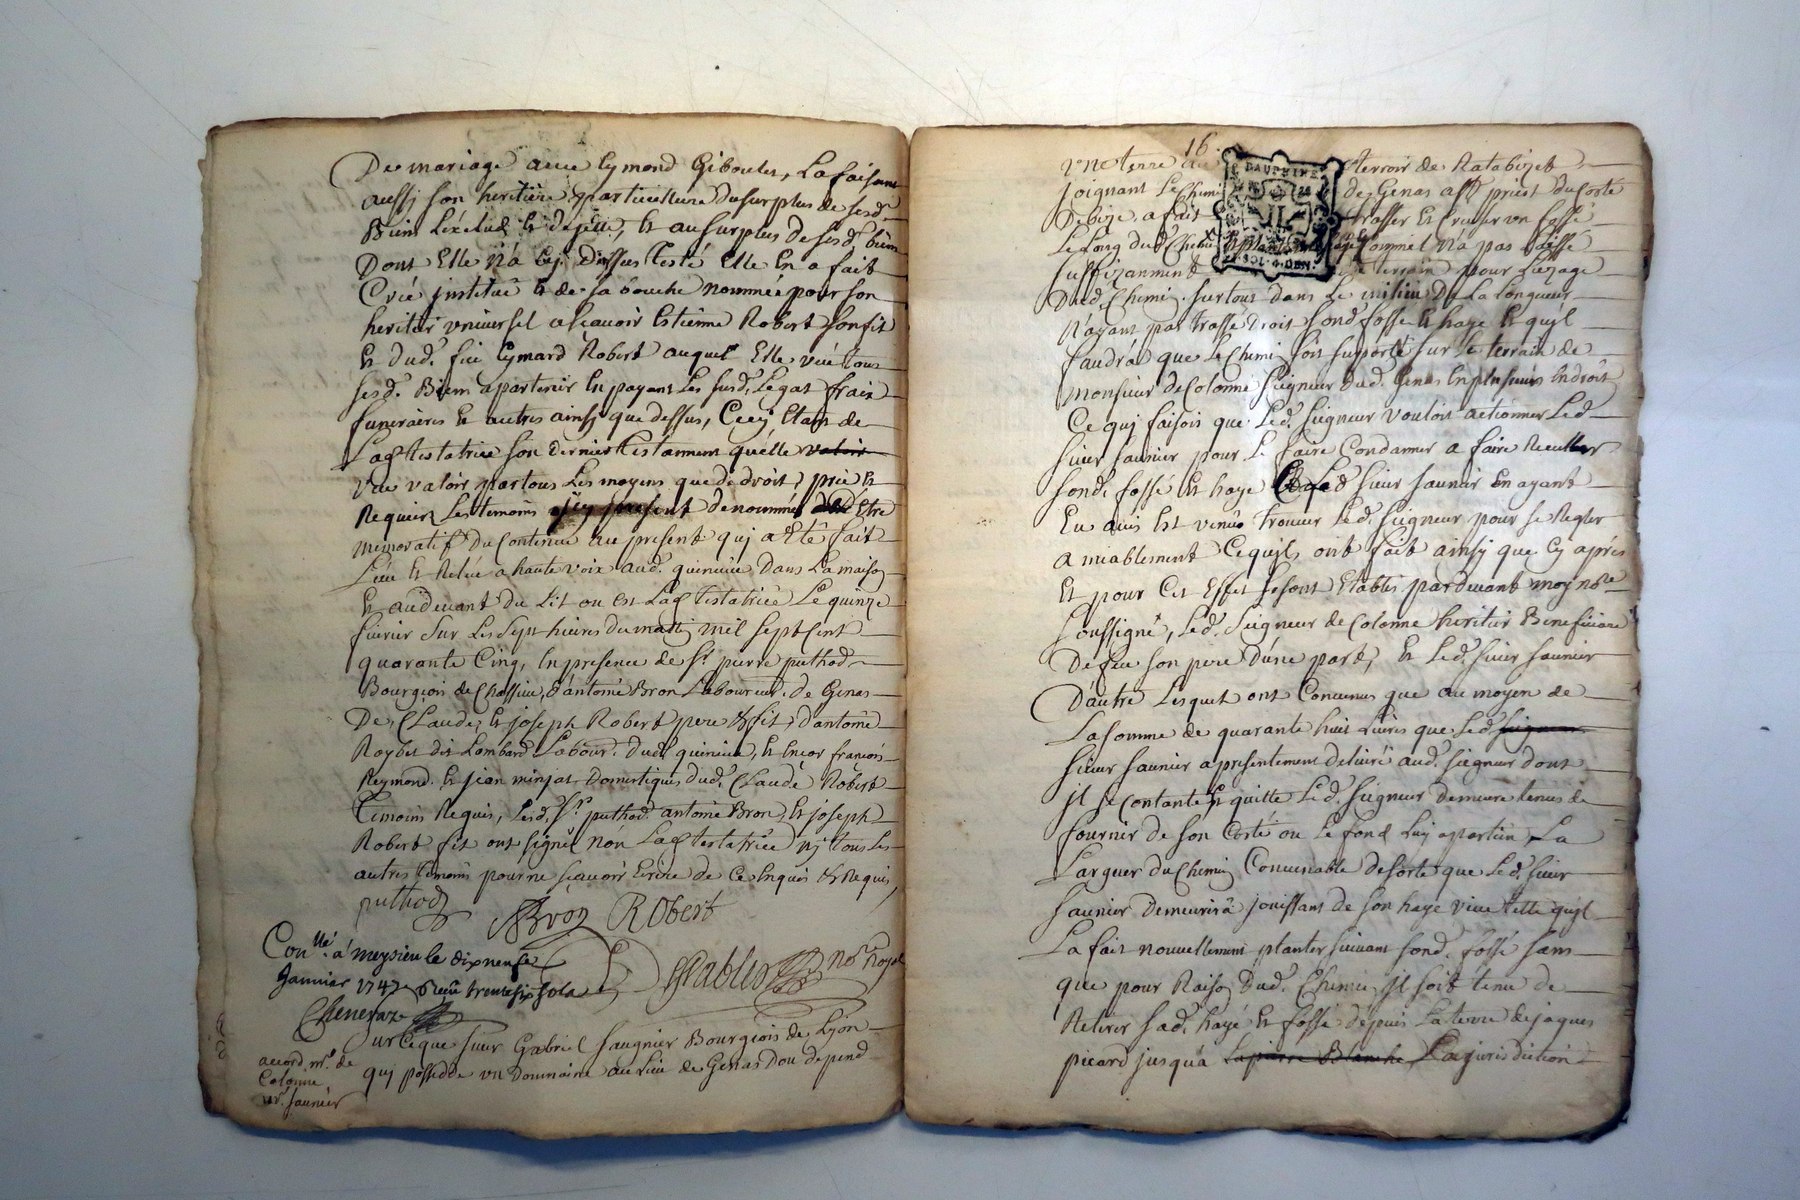 De mariage avec Eymond Giboulet, La faisant
aussy son heritiere particuliere du surplus de sesd.
Biens L'exclud et dejette, et au surplus de sesd. biens
Dont Elle n'a cy Dessus testé Elle En a fait
Créé institué et de sa bouche nommé pour son
heritier universel a scavoir Estienne Robert son fils
Et dud. feu Eymard Robert auquel Elle veut tous
sesd. Biens apartenir En payant Les susd. Legat fraix
funeraires et autres ainsy que dessus, Cecy Etant de
Lad. testatrice son dernier testament qu'elle valoir
veut valoir par tous Les moyens que de droit, prie et
Requiert Les temoins icy present denommés Etre
memoratif Du Contenu au present qui a Eté fait
Leu et Relue a haute voix aud. quinieu Dans La maison
Et audevant du Lit ou est Lad. testatrice Le quinze
fevrier sur Les Sept heures du matin mil sept Cent
quarante Cinq, En presence de Sr. pierre puthod
Bourgeois de Chassieu, d'antoine Bron Laboureur de Genas
De Claude et joseph Robert pere et fils, d'antoine
Roybet dit Lombard Labour. dud. quinieu, et Encor françois
Reymond et jean minjat Domestiques dud. Claude Robert
Temoins Requis, Lesd. Sr. puthod antoine Bron et joseph
Robert fils ont signé non Lad. testatrice ny tous Les
autres temoins pour ne scavoir Ecrire de ce Enquis et Requis,
puthod Bron RObert
Conllé. á meysieu le dixneuf
Janvier 1747 Receu trente six sols
Chenevaz
nore. Royal
Sur Ce que sieur Gabriel Saugnier Bourgeois de Lyon
accord mr. de
Colonne
mr. saunier
qui possede un Domaine au Lieu de Genas Dou depend
16.
DAUPHINÉ
SOL. 4. DEN.
une terre au terroir de Ratabizet
joignant Le Chemin de Genas a st. priest Du Costé
De bize, a fait trasser et Creuser un fossé
Le Long dud. Chemin
suffizanment terrain pour L'uzage
Dud. Chemin surtout dans Le milieu De La Longueur
N'ayant pas trassé droit sond. fossé et haye Et qu'il
faudra que Le Chemin soit suporté sur Le terrain de
monsieur de Colonne Seigneur dud. Genas En plusieurs Endroits
Ce qui faisoit que Led. Seigneur vouloit actionner Led.
sieur saunier pour Le faire Condanner a faire Reculler
sond. fossé Et haye Led. sieur saunier En ayant
Eu avis Est venu trouver Led. seigneur pour se Regler
amiablement Ce qu'ils ont fait ainsy que Cy aprés
Et pour Cet Effet se sont Etablis pardevant moy nore.
soussigné, Led. Seigneur de Colonne heritier Beneficiaire
De feu son pere D'une part, Et Led. sieur saunier
D'autre Lesquels ont Convenus que au moyen de
La somme de quarante huit Livres que Led. seigneur
sieur saunier a presentement delivré aud. seigneur dont
jl se Contante et quitte Led. seigneur Demeure tenus de
fournir de son Costé ou Le fond Luy apartien La
Larguer du Chemin Convenable de sorte que Led. sieur
saunier Demeurera jouissant de son haye vive telle qu'il
La fait nouvellement planter suivant sond. fossé sans
que pour Raison Dud. Chemin jl soit tenu de
Retirer sad. haye Et fossé depuis La terre de jaques
picard jusqu'a La pierre Blanche La jurisdiction